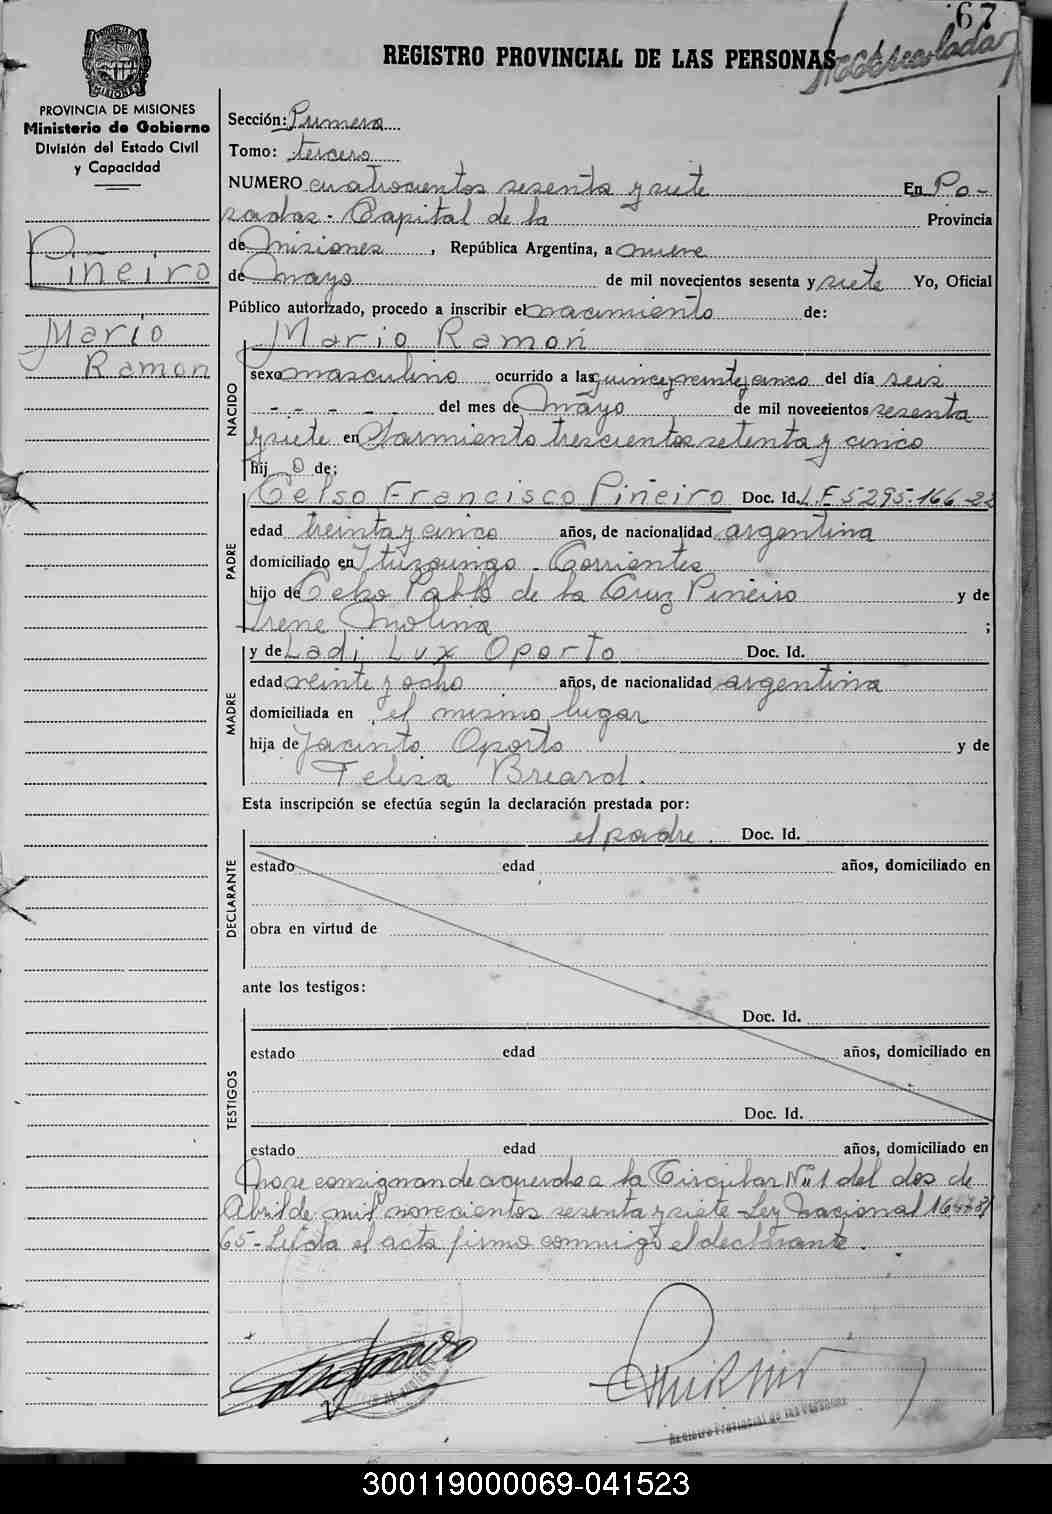 67
REGISTRO PROVINCIAL DE LAS PERSONAS
PROVINCIA DE MISIONES
Ministerio de Gobierno
División del Estado Civil
y Capacidad
Piñeiro
Mario
Ramon
Sección: Primera
Tomo: tercero
NUMERO cuatrocientos sesenta y siete En Po-
sadas - Capital de la Provincia
de Misiones, República Argentina, a nueve
de Mayo de mil novecientos sesenta y siete Yo, Oficial
Público autorizado, procedo a inscribir el nacimiento de:
Mario Ramón
NACIDO
sexo masculino ocurrido a las quince y veinte y cinco del día seis
- - - - - del mes de Mayo de mil novecientos sesenta
y siete en Sarmiento trescientos setenta y cinco
hij o de:
PADRE
Celso Francisco Piñeiro Doc. Id. L.E 5295.166-22
edad treinta y cinco años, de nacionalidad argentina
domiciliado en Ituzaingo - Corrientes
hijo de Celso Pablo de la Cruz Piñeiro y de
Irene Molina ;
MADRE
y de Ladi Lux Oporto Doc. Id.
edad veinte y ocho años, de nacionalidad argentina
domiciliada en el mismo lugar
hija de Jacinto Oporto y de
Felisa Breard.
Esta inscripción se efectúa según la declaración prestada por:
DECLARANTE
el padre. Doc. Id.
estado edad años, domiciliado en
obra en virtud de
ante los testigos:
TESTIGOS
Doc. Id.
estado edad años, domiciliado en
Doc. Id.
estado edad años, domiciliado en
No se consignan de acuerdo a la Circular Nº 1 del dos de
Abril de mil novecientos sesenta y siete - Ley Nacional 16.478/
65 - Leída el acta firmo conmigo el declarante.
Registro Provincial de las Personas
300119000069-041523